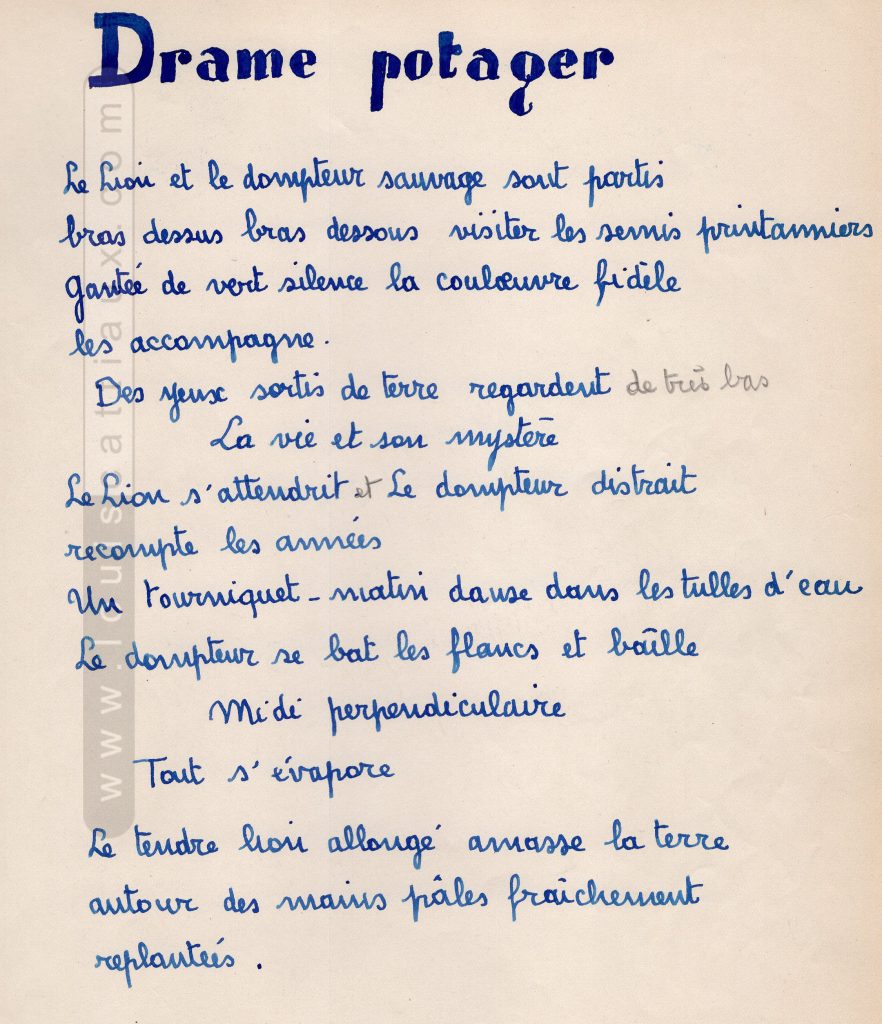 Drame potager
Le Lion et le dompteur sauvage sont partis
bras dessus bras dessous visiter les semis printanniers
Gantée de vert silence la coulœuvre fidèle
les accompagne.
Des yeux sortis de terre regardent de très bas
La vie et son mystère
Le Lion s'attendrit et Le dompteur distrait
recompte les années
Un tourniquet-matin danse dans les tulles d'eau
Le dompteur se bat les flancs et baîlle
Midi perpendiculaire
Tout s'évapore
Le tendre lion allongé amasse la terre
autour des mains pâles fraîchement
replantées.
www.louiscattiaux.com